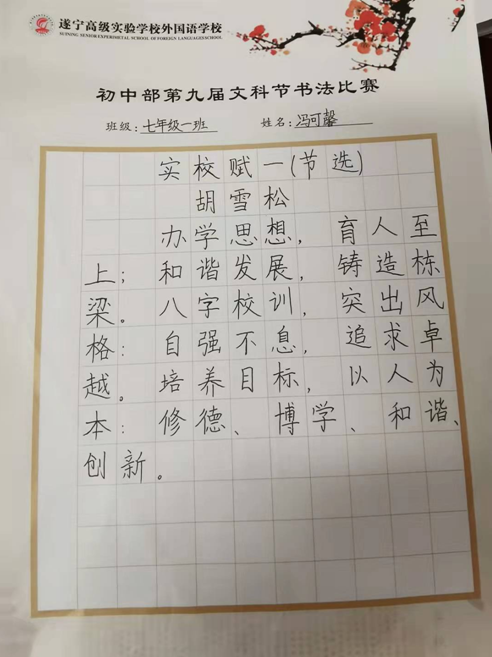 遂宁高级实验学校外国语学校
SUINING SENIOR EXPERIMETAL SCHOOL OF FOREIGN LANGUAGE SCHOOL
初中部第九届文科节书法比赛
班级:七年级一班 姓名:冯可馨
实校赋一(节选)
胡雪松
办学思想，育人至
上；和谐发展，铸造栋
梁。八字校训，突出风
格：自强不息，追求卓
越。培养目标，以人为
本：修德、博学、和谐、
创新。